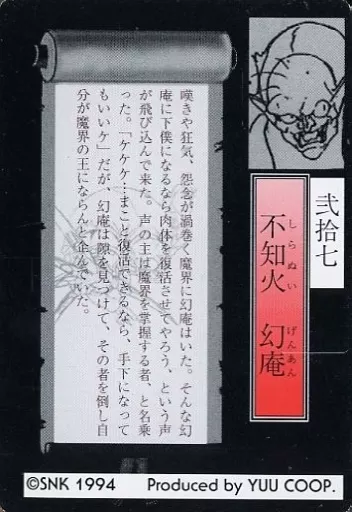 弐拾七
不知火 幻庵
しらぬい げんあん
嘆きや狂気、怨念が渦巻く魔界に幻庵はいた。そんな幻
庵に下僕になるなら肉体を復活させてやろう、という声
が飛び込んで来た。声の主は魔界を掌握する者、と名乗
った。「ケケケ…まこと復活できるなら、手下になって
もいいケ」だが、幻庵は隙を見つけて、その者を倒し自
分が魔界の王にならんと企んでいた。
©SNK 1994 Produced by YUU COOP.